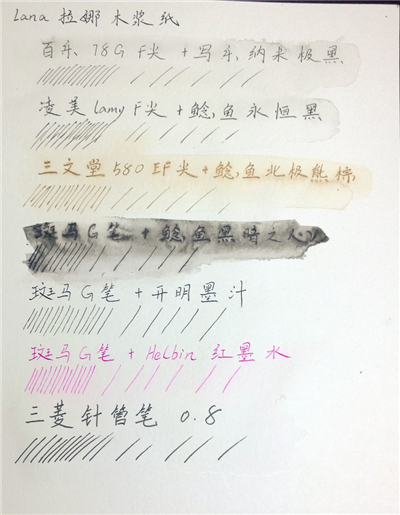 Lana 拉娜木浆纸
百乐 78G F尖 + 写乐纳米极黑
凌美 lamy F尖 + 鲶鱼永恒黑
三文堂 580 EF尖 + 鲶鱼北极熊棕
斑马G笔 + 鲶鱼黑暗之心
斑马G笔 + 开明墨汁
斑马G笔 + Helbin 红墨水
三菱针管笔 0.8